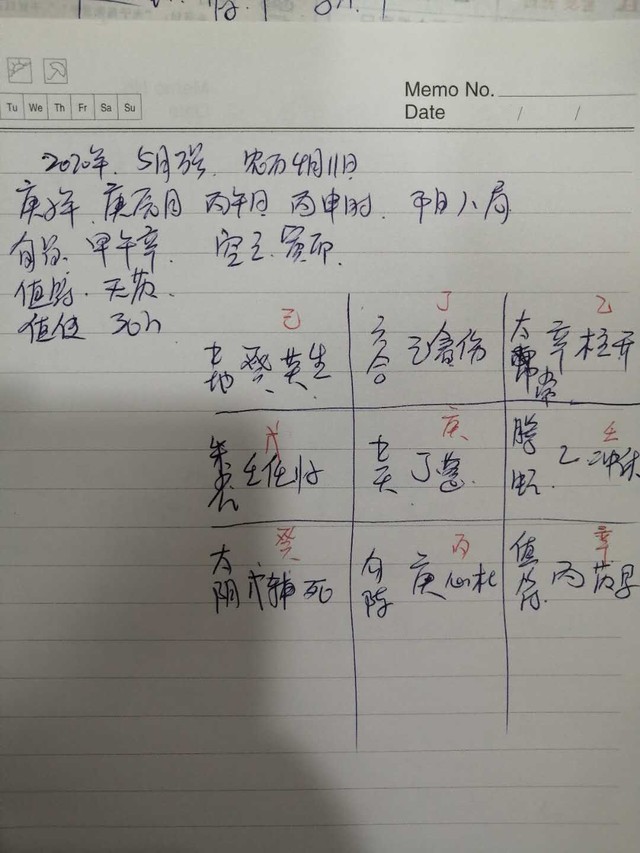 Memo No.
Date / /
Tu We Th Fr Sa Su
2020年 5月3号 农历4月11日
庚子年 庚辰月 丙午日 丙申时
旬首 甲午辛 空亡
值符 天芮
值使
己 丁 乙
九地 癸 英生
六合 己 伤
太常 辛 柱开
戊 庚 壬
朱雀 壬任
九天 丁
螣蛇 乙 冲休
癸 丙 辛
太阴 戊辅死
勾陈 庚 心杜
值符 丙 芮